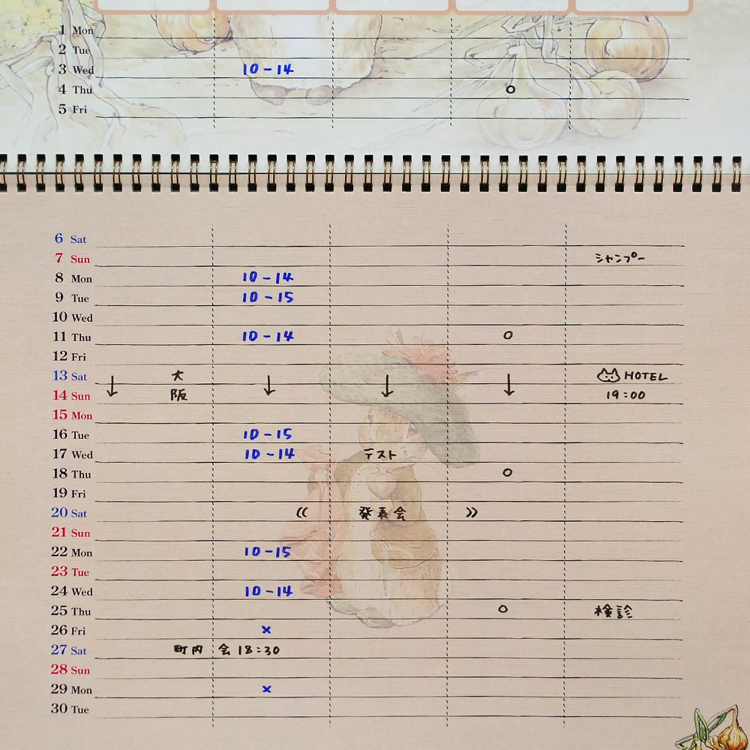 1 Mon
2 Tue
3 Wed 10-14
4 Thu ○
5 Fri
6 Sat
7 Sun シャンプー
8 Mon 10-14
9 Tue 10-15
10 Wed
11 Thu 10-14 ○
12 Fri
13 Sat ↓ 大 ↓ ↓ ↓ HOTEL
14 Sun 阪 19:00
15 Mon
16 Tue 10-15
17 Wed 10-14 テスト
18 Thu ○
19 Fri
20 Sat 《 発表会 》
21 Sun
22 Mon 10-15
23 Tue
24 Wed 10-14
25 Thu ○ 検診
26 Fri ×
27 Sat 町内会 18:30
28 Sun
29 Mon ×
30 Tue